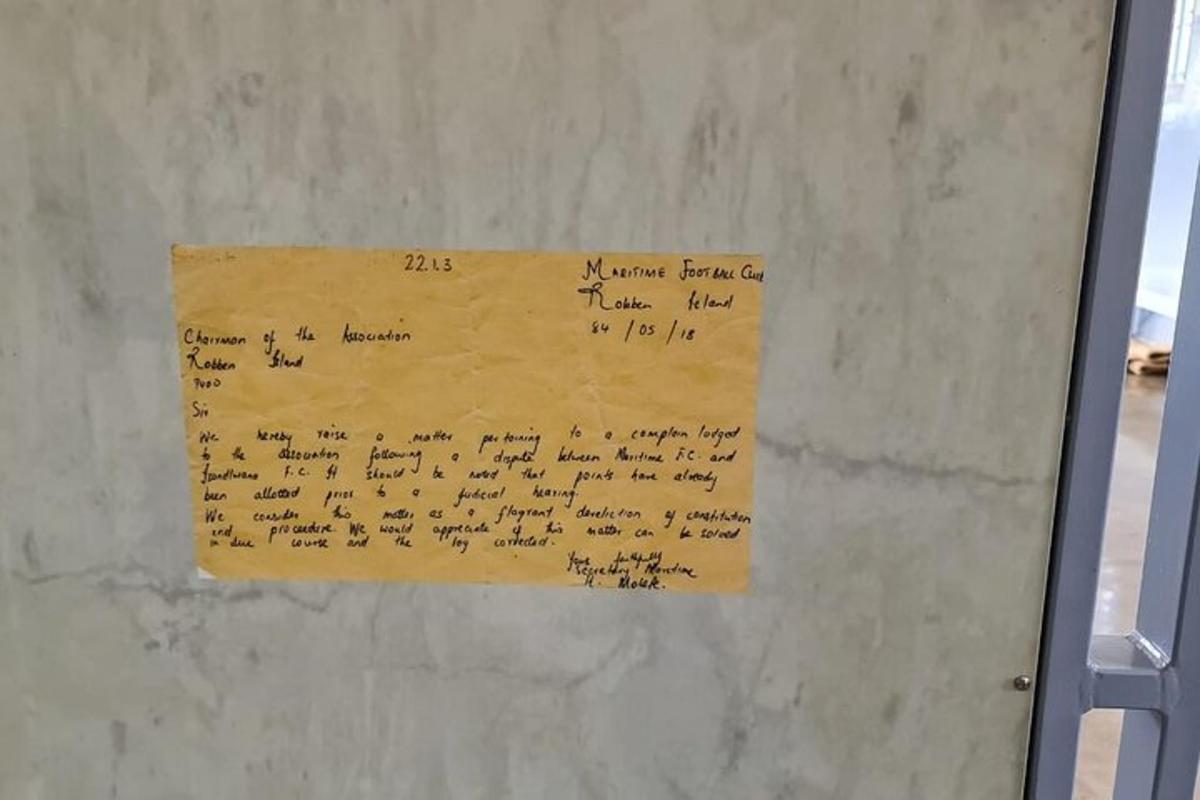 22.1.3
MARITIME FOOTBALL CLUB
Robben Island
84/05/18
Chairman of the Association
Robben Island
7400
Sir
We hereby raise a matter pertaining to a complain lodged
to the association following a dispute between Maritime F.C. and
Isandlwana F.C. It should be noted that points have already
been allotted prior to a judicial hearing.
We consider this matter as a flagrant dereliction of constitution
and procedure. We would appreciate if this matter can be solved
in due course and the log corrected.
Yours faithfully
Secretary Maritime